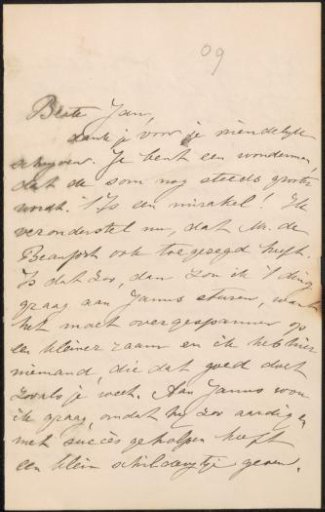 09
Beste Jan,
Dank je voor je vriendelijk
schrijven. Je bent een wonderman,
dat de som nog steeds grooter
wordt. 't Is een mirakel! Ik
veronderstel nu, dat M. de
Beaufort ook toegezegd heeft.
Is dat zoo, dan zou ik 't ding
graag aan Janus sturen, want
het moet overgespannen op
een kleiner raam en ik heb hier
niemand, die dat goed doet
zooals je weet. Aan Janus wou
ik graag, omdat hij zoo aardig en
met succès geholpen heeft
een klein schilderijtje geven.